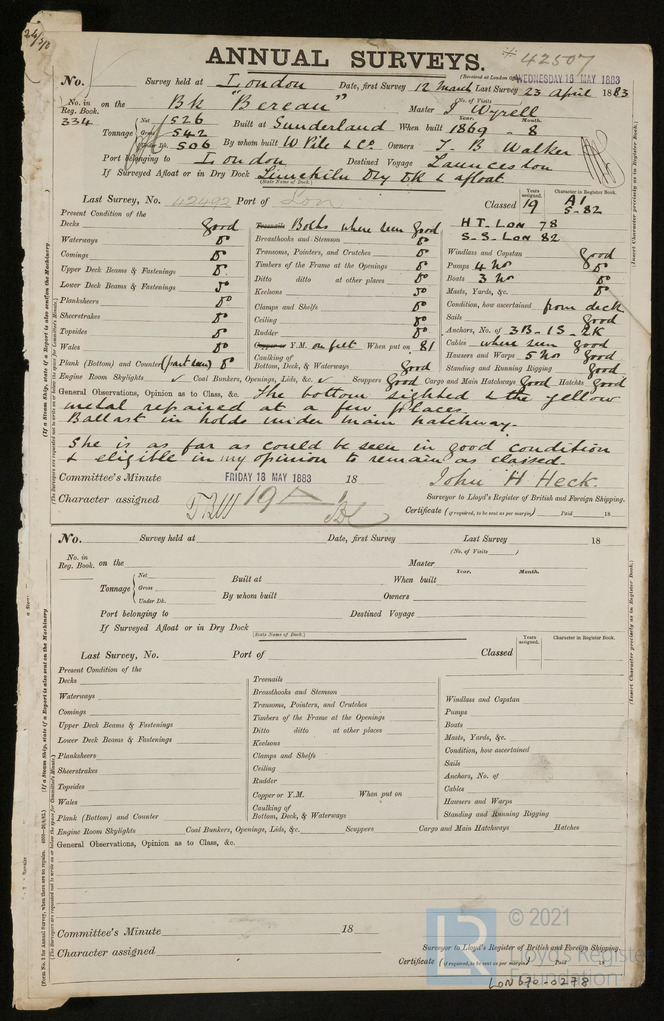 24/5/
ANNUAL SURVEYS.
# 42507
(Received at London Office WEDNESDAY 16 MAY 1883
No. Survey held at London Date, first Survey 12 March Last Survey 23 April 1883
(No. of Visits )
No. in Reg. Book. 334 on the Bk "Bereau" Master J Wyrell
Tonnage Net 526 Gross 542 Under Dk. 506 Built at Sunderland When built Year. 1869 Month. 8
By whom built W Pile & Co Owners T. B Walker
Port belonging to London Destined Voyage Launceston
If Surveyed Afloat or in Dry Dock Limekiln Dry Dk & afloat
(State Name of Dock.)
Last Survey, No. 42492 Port of Lon Classed Years assigned. 19 Character in Register Book. A1 5-82
Present Condition of the
Decks good
Waterways do
Comings do
Upper Deck Beams & Fastenings do
Lower Deck Beams & Fastenings do
Planksheers do
Sheerstrakes do
Topsides do
Wales do
Plank (Bottom) and Counter (part seen) do
Treenails Bolts where seen good
Breasthooks and Stemson do
Transoms, Pointers, and Crutches do
Timbers of the Frame at the Openings do
Ditto ditto at other places do
Keelsons do
Clamps and Shelfs do
Ceiling do
Rudder do
Copper or Y.M. on felt When put on 81
Caulking of Bottom, Deck, & Waterways good
HT. LON 78
S.S. LON 82
Windlass and Capstan good
Pumps 4 No do
Boats 3 No do
Masts, Yards, &c. do
Condition, how ascertained from deck
Sails good
Anchors, No. of 3B-1S-2K
Cables where seen good
Hawsers and Warps 5 No good
Standing and Running Rigging good
Engine Room Skylights ✓ Coal Bunkers, Openings, Lids, &c. ✓ Scuppers good Cargo and Main Hatchways good Hatches good
General Observations, Opinion as to Class, &c. The bottom sighted & the yellow
metal repaired at a few places.
Ballast in holds under main hatchway.
She is as far as could be seen in good condition
& eligible in my opinion to remain as classed.
Committee's Minute FRIDAY 18 MAY 1883 18
John H Heck
Character assigned 19 A 1
Surveyor to Lloyd's Register of British and Foreign Shipping.
Certificate (if required, to be sent as per margin) Paid 18
No. Survey held at Date, first Survey Last Survey 18
(No. of Visits )
No. in Reg. Book. on the Master
Tonnage Net Gross Under Dk. Built at When built Year. Month.
By whom built Owners
Port belonging to Destined Voyage
If Surveyed Afloat or in Dry Dock
(State Name of Dock.)
Last Survey, No. Port of Classed Years assigned. Character in Register Book.
Present Condition of the
Decks
Waterways
Comings
Upper Deck Beams & Fastenings
Lower Deck Beams & Fastenings
Planksheers
Sheerstrakes
Topsides
Wales
Plank (Bottom) and Counter
Treenails
Breasthooks and Stemson
Transoms, Pointers, and Crutches
Timbers of the Frame at the Openings
Ditto ditto at other places
Keelsons
Clamps and Shelfs
Ceiling
Rudder
Copper or Y.M. When put on
Caulking of Bottom, Deck, & Waterways
Windlass and Capstan
Pumps
Boats
Masts, Yards, &c.
Condition, how ascertained
Sails
Anchors, No. of
Cables
Hawsers and Warps
Standing and Running Rigging
Engine Room Skylights Coal Bunkers, Openings, Lids, &c. Scuppers Cargo and Main Hatchways Hatches
General Observations, Opinion as to Class, &c.
Committee's Minute 18
Character assigned
Surveyor to Lloyd's Register of British and Foreign Shipping.
Certificate (if required, to be sent as per margin) Paid 18
(If a Steam Ship, state if a Report is also sent on the Machinery
(The Surveyors are requested not to write on or below the space for Committee's Minute.)
(Insert Character precisely as in Register Book.)
(If a Steam Ship, state if a Report is also sent on the Machinery
(The Surveyors are requested not to write on or below the space for Committee's Minute.)
(Insert Character precisely as in Register Book.)
LR
© 2021
Lloyd's Register
Foundation
LON 670-0278